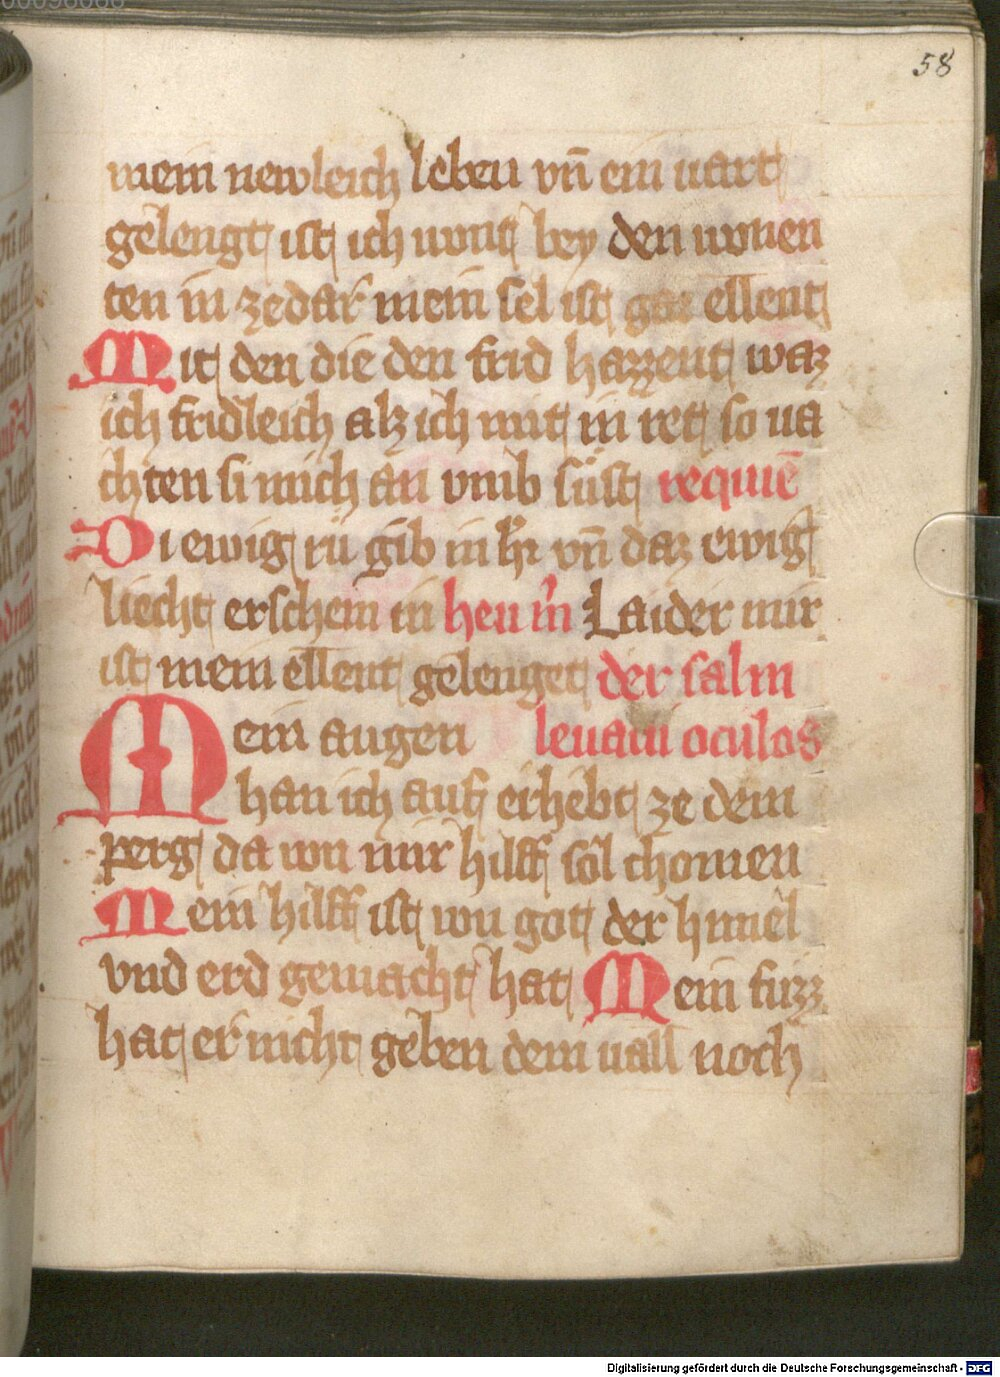 58
mein newleich leben vn̄ ein uart
gelengt ist ich wont bey den wonen
ten in zedar mein sel ist gar ellent
Mit den die den frid hazzent waz
ich fridleich alz ich mit in ret so va
chten si mich an vmb süst requiē
Di ewig rü gib in hr̄ vn̄ daz ewig
liecht erschein in heu m̄ Laider mir
ist mein ellent gelenget der salm
Mein augen leuaui oculos
han ich auf erhebt ze dem
perg da von mir hilff sol chomen
Mein hilff ist von got der himel
vnd erd gemacht hat Mein fuzz
hat er nicht geben dem uall noch
Digitalisierung gefördert durch die Deutsche Forschungsgemeinschaft - DFG